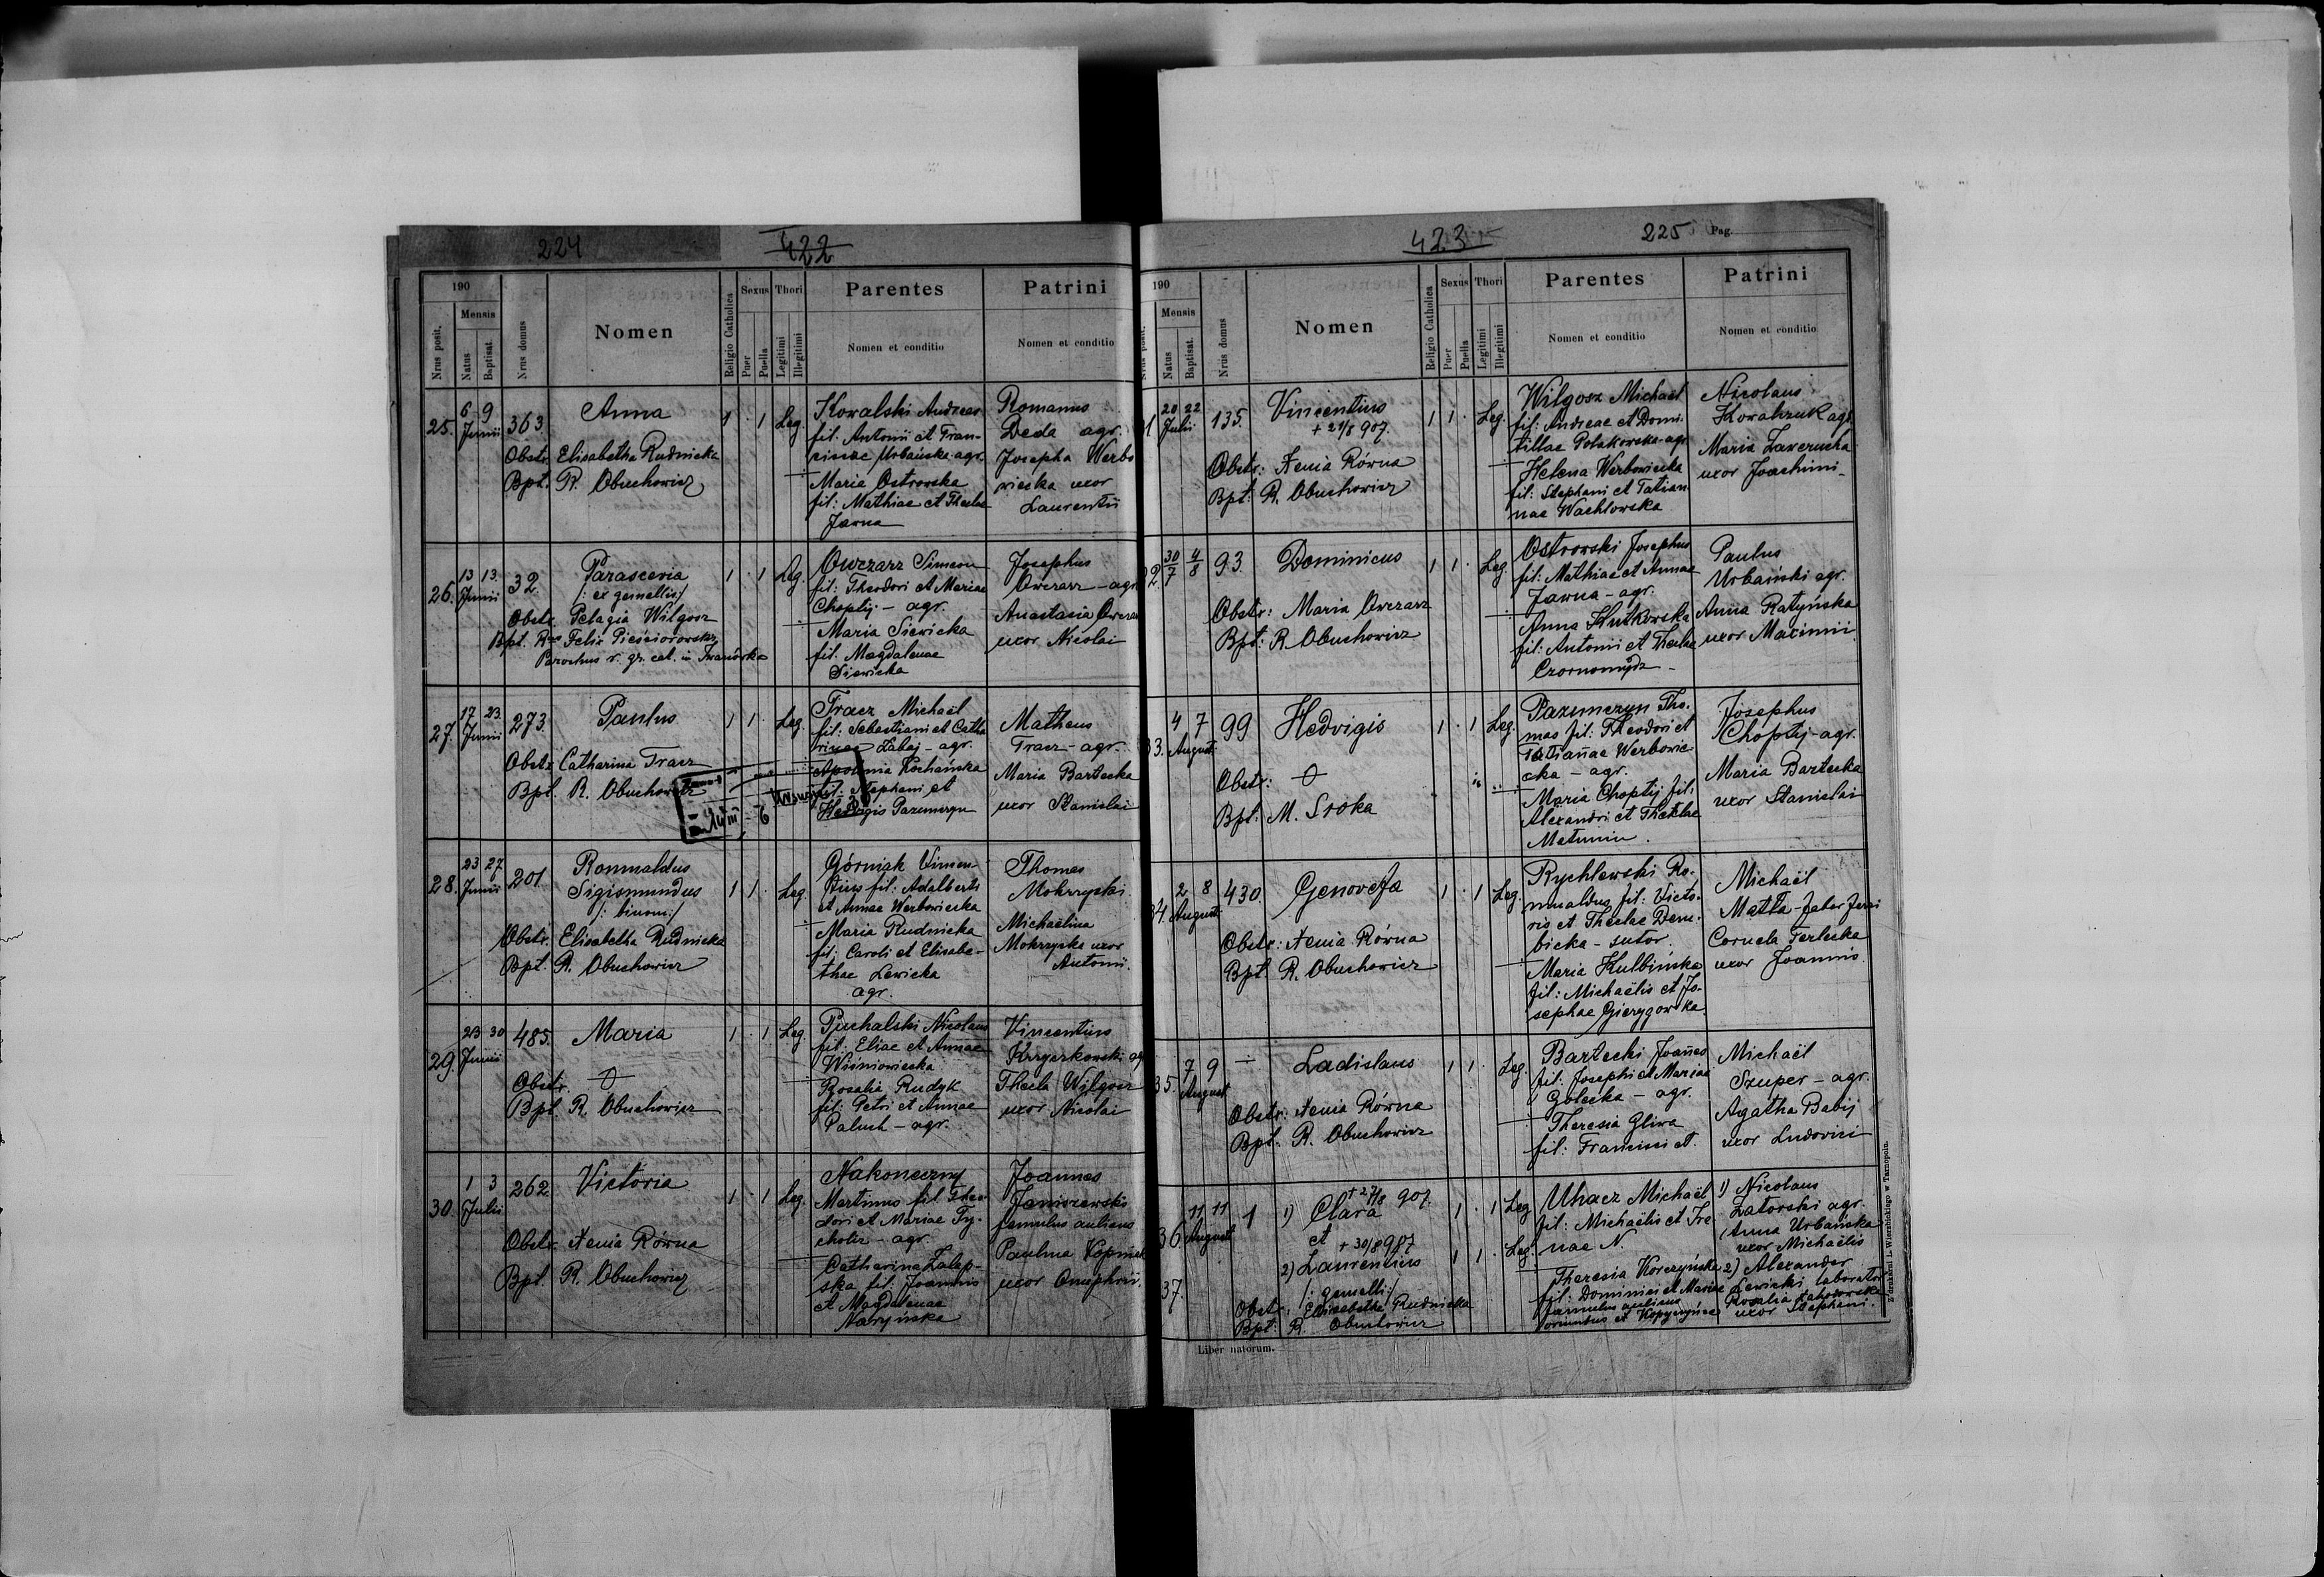 224
422
190
Mensis
Nrus posit.
Natus
Baptisat.
Nrus domus
Nomen
Religio Catholica
Sexus
Puer
Puella
Thori
Legitimi
Illegitimi
Parentes
Nomen et conditio
Patrini
Nomen et conditio
25.
6 9
Junii
363.
Anna
1 · 1 Leg.
Obstr. Elisabetha Rudnicka
Bpt. R. Obuchowicz
Kowalski Andreas
fil. Antonii et Fran-
ciscae Urbańska agr.
Maria Ostrowska
fil: Mathiae et Theclae
Jawna
Romanus
Deda agr.
Josepha Werbo
wiecka uxor
Laurentii
26.
13 13.
Junii
32
Parascevia
/: ex gemellis:/
1 · 1 Leg.
Obstr. Pelagia Wilgosz
Bpt. Felix
Parochus r. gr. cat. in Iwanówka
Owczarz Simeon
fil: Theodori et Mariae
Choptij - agr.
Maria Siewicka
fil. Magdalenae
Siewicka
Josephus
Owczarz - agr
Anastasia
uxor Nicolai
27.
17 23.
Junii
273.
Paulus
1 1 · Leg.
Obstr. Catharina Tracz
Bpt. R. Obuchowicz
Tracz Michaël
fil: Sebastiani et Catha
rinae Zabaj - agr.
Apolonia Kochańska
fil. Stephani et
Hedvigis Pazumczyn
Matheus
Tracz - agr.
Maria Bartecka
uxor Stanislai
28.
23 27
Junii
201
Romualdus
Sigismundus
/: binom:/
1 1 · Leg.
Obstr. Elisabetha Rudnicka
Bpt. R. Obuchowicz
Górniak Vincen-
tius fil: Adalberti
et Annae Werbowiecka
Maria Rudnicka
fil: Caroli et Elisabe-
thae Lewicka
agr.
Thomas
Mokrzycki
Michaëlina
Mokrzycka uxor
Antonii.
29.
23 30
Junii
485.
Maria
1 · 1 Leg.
Obstr.
Bpt. R. Obuchowicz
Puchalski Nicolaus
fil. Eliae et Annae
Wiśniowiecka
Rosalia Rudyk
fil: Petri et Annae
Paluch - agr.
Vincentius
Krzyczkowski
Thecla Wilgosz
uxor Nicolai
30.
1 3
Julii
262
Victoria
1 · 1 Leg.
Obstr. Xenia Równa
Bpt. R. Obuchowicz
Nakoneczny
Martinus fil. Theo
dori et Mariae Ty-
choliz - agr.
Catharina Zalep-
ska fil. Joannis
et Magdalenae
Naryńska
Joannes
Janiszewski
famulus aulicus
Paulina
uxor Onuphrii.
423
225 Pag.
190
Mensis
Nrus posit.
Natus
Baptisat.
Nrus domus
Nomen
Religio Catholica
Sexus
Puer
Puella
Thori
Legitimi
Illegitimi
Parentes
Nomen et conditio
Patrini
Nomen et conditio
1
20 22
Julii
135.
Vincentius
+ 21/8 907.
1 1 · Leg.
Obstr: Xenia Równa
Bpt: R. Obuchowicz
Wilgosz Michaël
fil: Andreae et Domi-
tillae Polakowska - agr
Helena Werbowiecka
fil: Stephani et Tatian
nae Wachlowska
Nicolaus
Kowalczuk agr
Maria Lawrucka
uxor Joachimi -
2.
30/7 4/8
93.
Dominicus
1 1 · Leg
Obstr: Maria Owczarz
Bpt: R Obuchowicz
Ostrowski Josephus
fil: Mathiae et Annae
Jawna - agr.
Anna Hutkowska
fil: Antonii et Theclae
Czornomydz -
Paulus
Urbański agr.
Anna Ratyńska
uxor Maximii
3.
4 7
August.
99
Hedvigis
1 · 1 Leg.
Obstr:
Bpt: M. Sroka
Pazumczyn Tho-
mas fil: Theodori et
Tatiañae Werbowie-
cka - agr.
Maria Choptij fil:
Alexandri et Theclae
Matunin.
Josephus
Choptij - agr.
Maria Bartecka
uxor Stanislai
34.
2 8
August.
430.
Genovefa
1 · 1 Leg.
Obstr: Xenia Równa
Bpt. R. Obuchowicz
Rychlewski Ro-
mualdus fil: Victo-
ris et Theclae Dem-
bicka - sutor.
Maria Kulbińska
fil: Michaëlis et Jo-
sephae Gierygowska
Michaël
Matła - faber
Cornela Terlecka
uxor Joannis.
35.
7 9
August
Ladislaus
1 1 · Leg.
Obstr: Xenia Równa
Bpt. R. Obuchowicz
Bartecki Joañes
fil: Josephi et Mariae
Golecka - agr.
Theresia Gliwa
fil: Francisci et
Michaël
Szuper - agr.
Agatha Babij
uxor Ludovici
36
11 11
August
1
1) Clara
+ 27/8 907.
et
+ 30/8 907
2) Laurentius
/: gemelli:/
1 · 1 Leg
1 1 · Leg.
37.
Obstr: Elisabetha Rudnicka
Bpt: R. Obuchowicz
Uhacz Michaël
fil: Michaëlis et Ire
nae N.
Theresia Korczyńska
fil: Dominici et Mariae
famulus aulicus
1) Nicolaus
Zatorski agr.
Anna Urbańska
uxor Michaëlis
2) Alexander
Lewicki laborator
Rosalia
uxor Stephani.
Liber natorum.
Z drukarni L. Wierzbickiego w Tarnopolu.